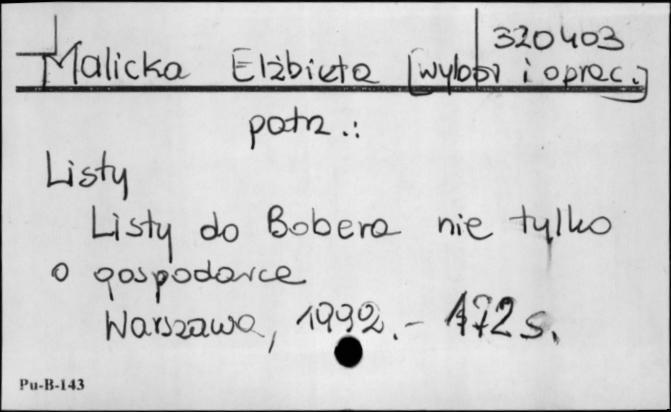 320403
Malicka Elżbieta [wybór i oprac.]
patrz.:
Listy
Listy do Bobera nie tylko
o gospodarce
Warszawa, 1992.- 172 s.
Pu-B-143